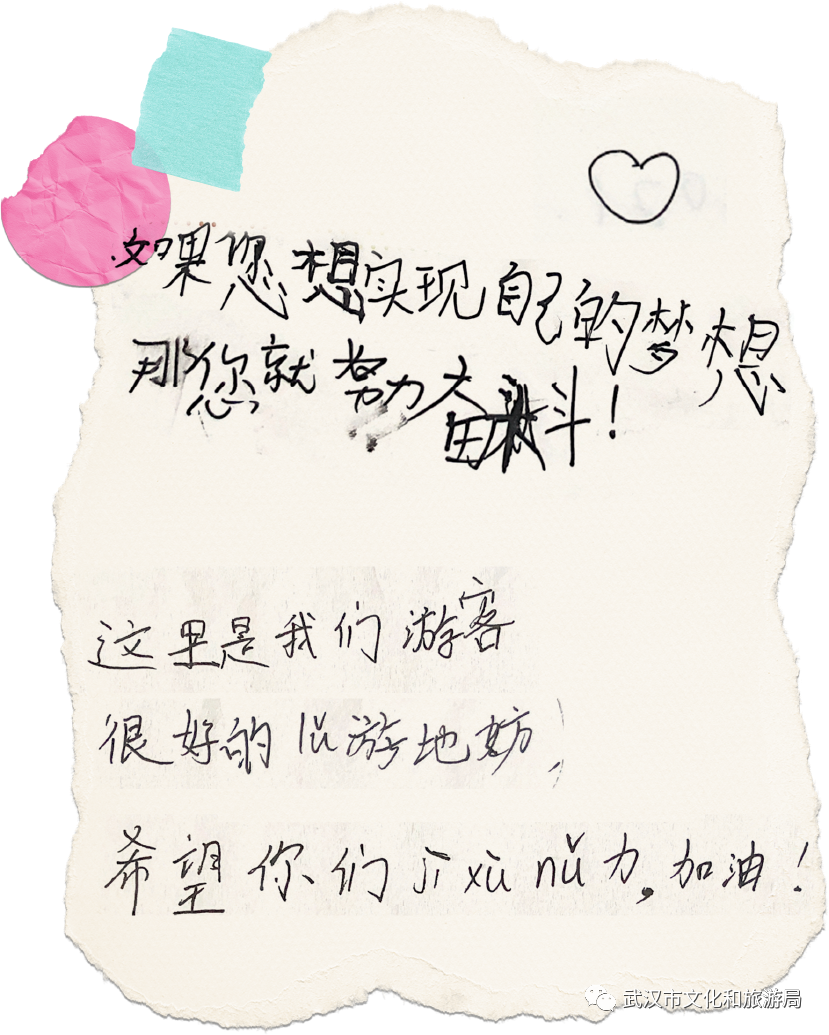 如果您想实现自己的梦想
那您就努力奋斗！
这里是我们游客
很好的lǚ游地妨，
希望你们jì xù nǔ力，加油！
武汉市文化和旅游局